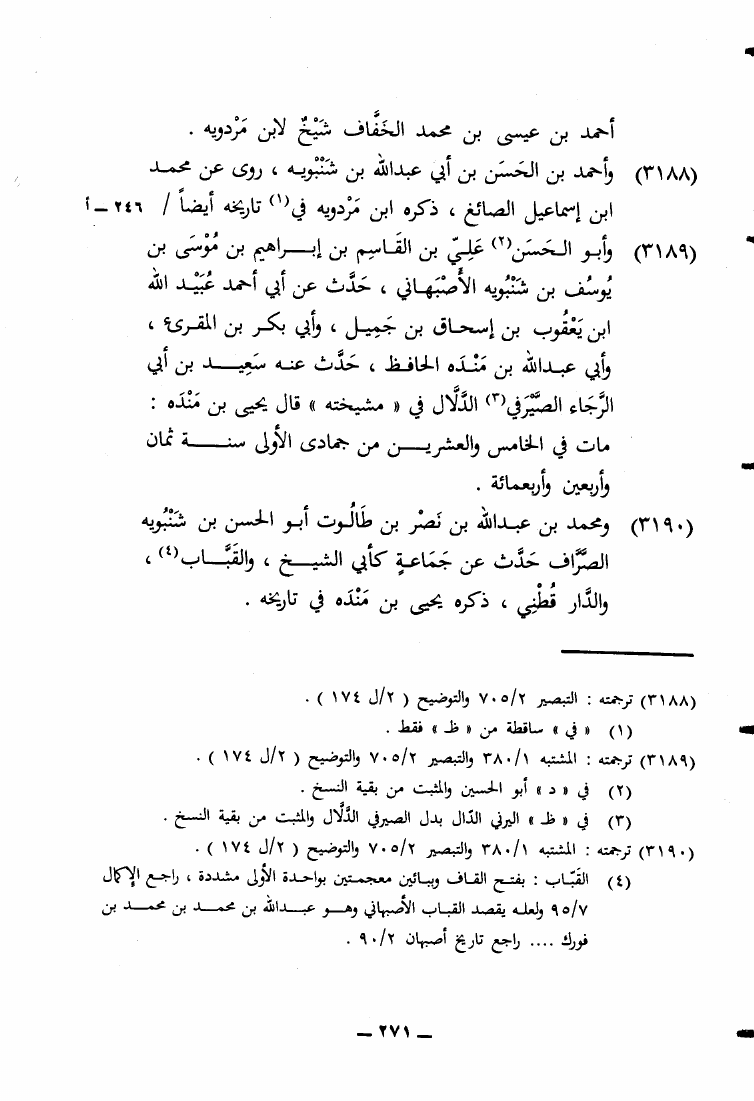 أحمد بن عيسى بن محمد الخَفَّاف شَيْخٌ لابن مَرْدويه .
(٣١٨٨) وأحمد بن الحَسَن بن أبي عبدالله بن شَنْبُويه ، روى عن محمد
ابن إسماعيل الصائغ ، ذكره ابن مَرْدويه في(١) تاريخه أيضاً / ٢٤٦ ــ أ
(٣١٨٩) وأبو الحَسَن(٢) عَلِيّ بن القَاسِم بن إبراهيم بن مُوْسَى بن
يُوسُف بن شَنْبُويه الأَصْبَهاني ، حَدَّث عن أبي أحمد عُبَيْد الله
ابن يَعْقُوب بن إسحاق بن جَمِيل ، وأبي بكر بن المقرىء ،
وأبي عبدالله بن مَنْدَه الحافظ ، حَدَّث عنه سَعِيد بن أبي
الرَّجَاء الصَّيْرَفي(٣) الدَّلَّال في « مشيخته » قال يحيى بن مَنْدَه :
مات في الخامس والعشرين من جمادى الأولى سنة ثمان
وأربعين وأربعمائة .
(٣١٩٠) ومحمد بن عبدالله بن نَصْر بن طَالُوت أبو الحسن بن شَنْبُويه
الصَّرَّاف حَدَّث عن جَمَاعةٍ كأبي الشيخ ، والقَبَّاب(٤) ،
والدَّار قُطْنِي ، ذكره يحيى بن مَنْدَه في تاريخه .
(٣١٨٨) ترجمته : التبصير ٧٠٥/٢ والتوضيح ( ٢/ل ١٧٤ ) .
(١) « في » ساقطة من « ظ » فقط .
(٣١٨٩) ترجمته : المشتبه ٣٨٠/١ والتبصير ٧٠٥/٢ والتوضيح ( ٢/ل ١٧٤ ) .
(٢) في « د » أبو الحسين والمثبت من بقية النسخ .
(٣) في « ظ » اليرني الدّال بدل الصيرفي الدَّلَّال والمثبت من بقية النسخ .
(٣١٩٠) ترجمته : المشتبه ٣٨٠/١ والتبصير ٧٠٥/٢ والتوضيح ( ٢/ل ١٧٤ ) .
(٤) القَبَّاب : بفتح القاف وببائين معجمتين بواحدة الأولى مشددة ، راجع الإكمال
٩٥/٧ ولعله يقصد القباب الأصبهاني وهو عبدالله بن محمد بن محمد بن
فورك .... راجع تاريخ أصبهان ٩٠/٢ .
ــ ٢٧١ ــ